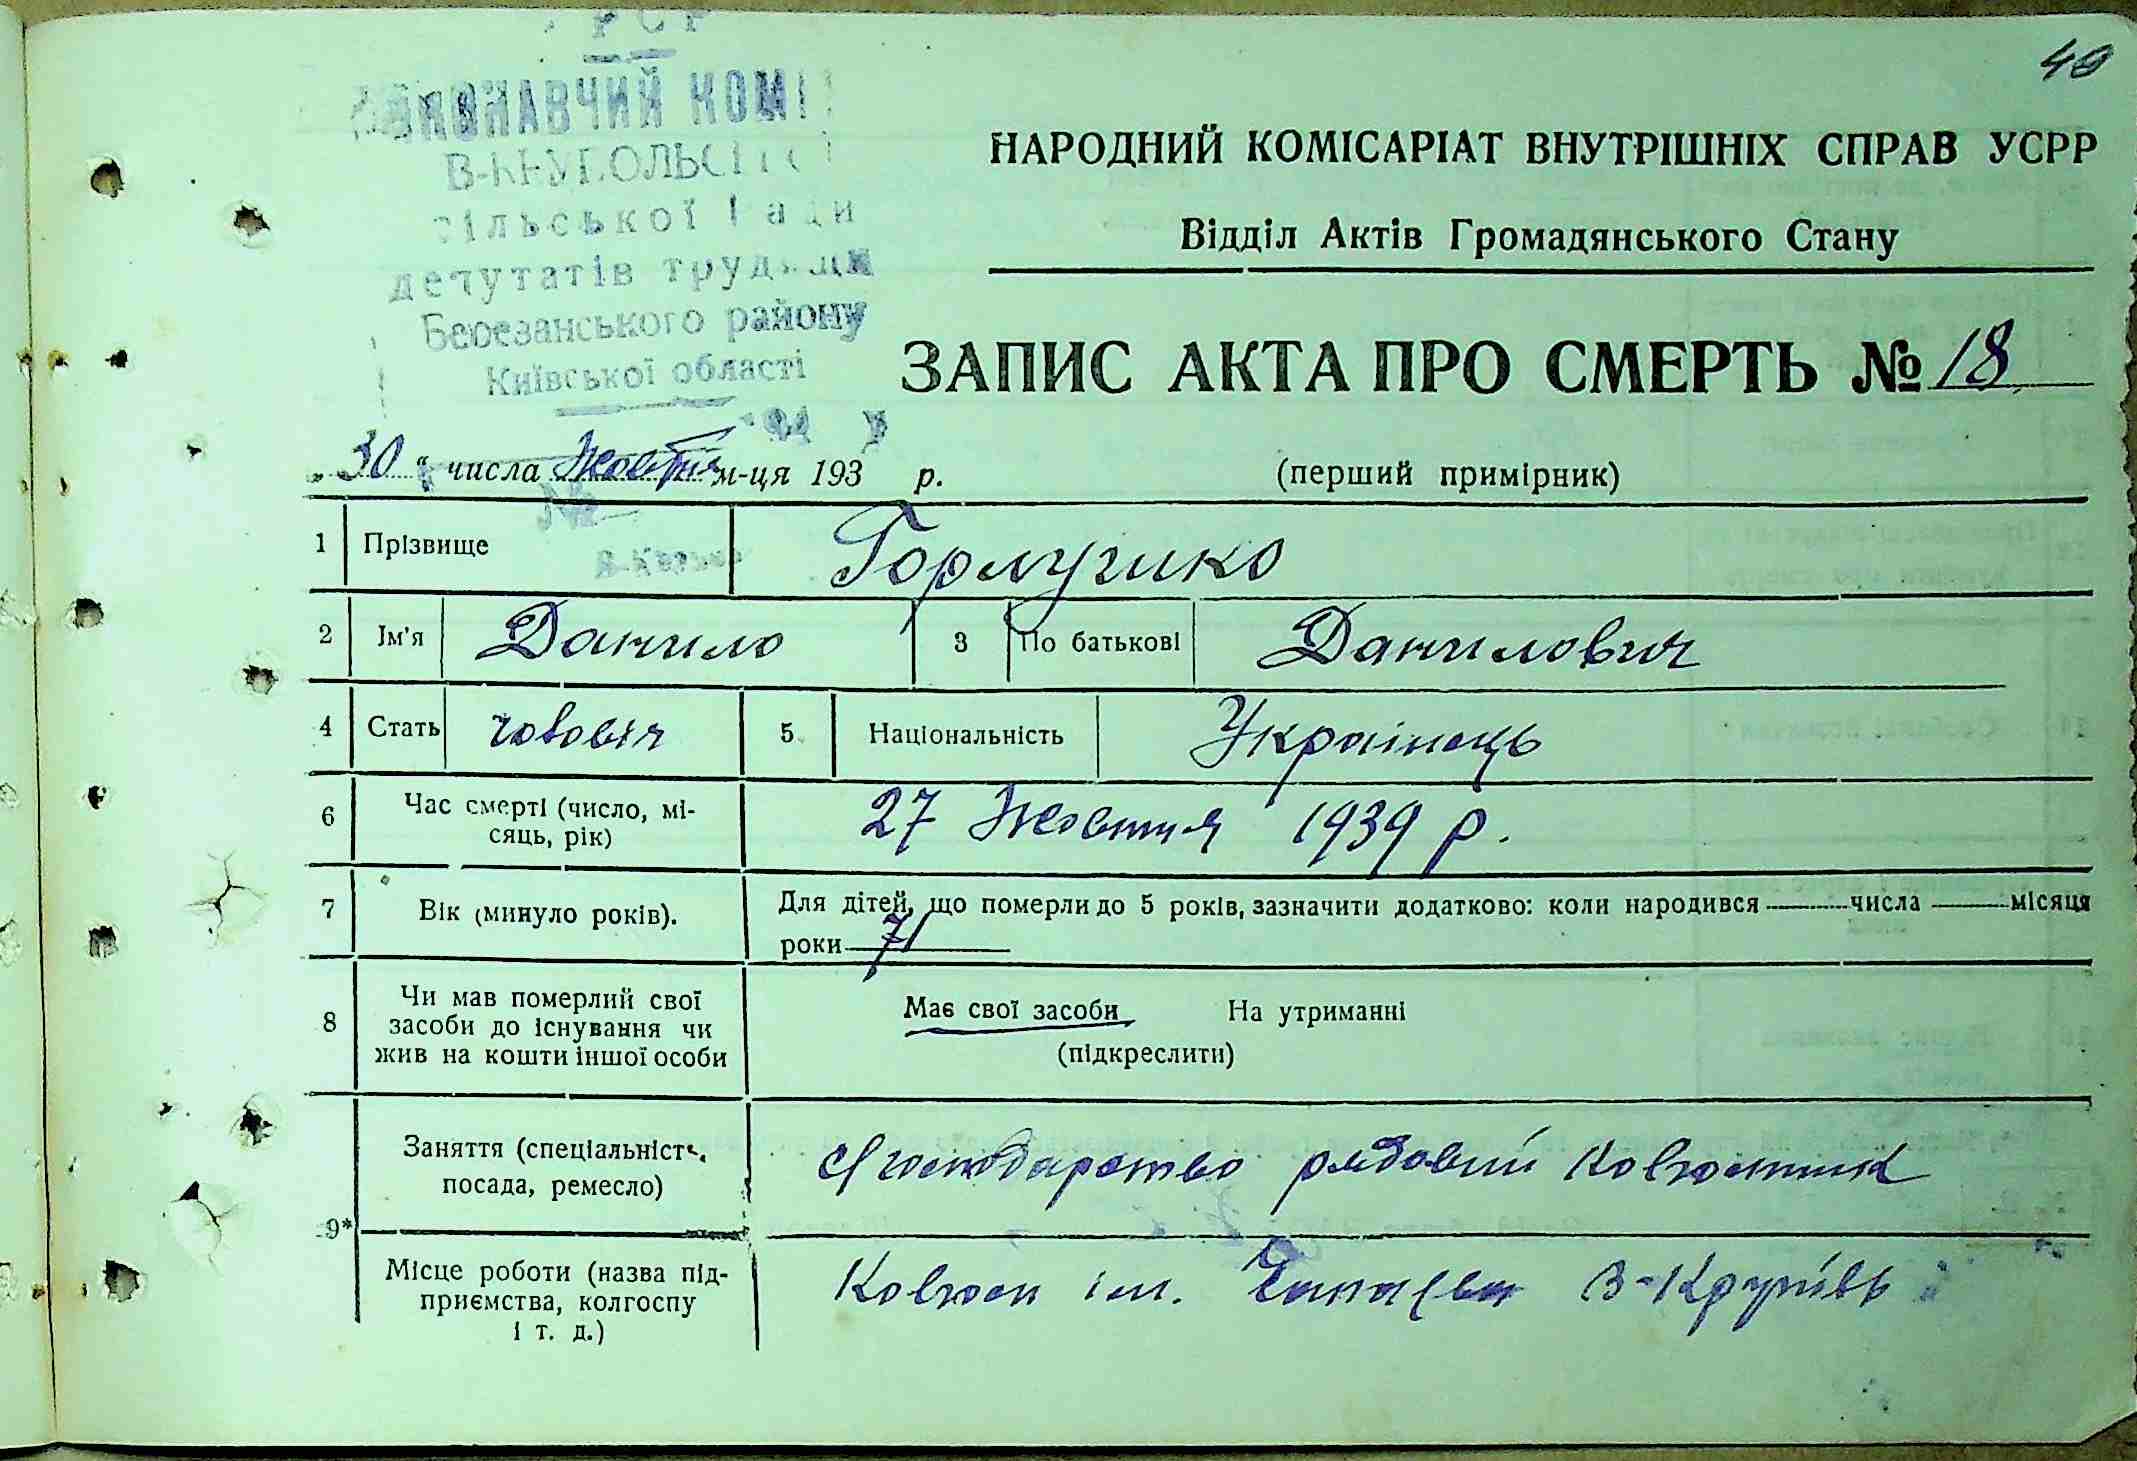 РСР
ВИКОНАВЧИЙ КОМІ
В-КРУПОЛЬСЬКОЇ
сільської Ради
депутатів трудящи
Березанського району
Київської області
40
НАРОДНИЙ КОМІСАРІАТ ВНУТРІШНІХ СПРАВ УСРР
Відділ Актів Громадянського Стану
ЗАПИС АКТА ПРО СМЕРТЬ № 18
„30“ числа Жовтня м-ця 193 р.
(перший примірник)
№
1 Прізвище Горлушко
2 Ім'я Данило 3 По батькові Данилович
4 Стать чоловіч 5 Національність Українець
6 Час смерті (число, мі-
сяць, рік) 27 Жовтня 1939 р.
7 Вік (минуло років). Для дітей, що померли до 5 років, зазначити додатково: коли народився числа місяця
роки 71
8 Чи мав померлий свої
засоби до існування чи
жив на кошти іншої особи
Має свої засоби На утриманні
(підкреслити)
9* Заняття (спеціальність,
посада, ремесло) С/господарство рядовий колгоспник
Місце роботи (назва під-
приємства, колгоспу
і т. д.) Колгосп ім. Чапаєва В-Крупіль